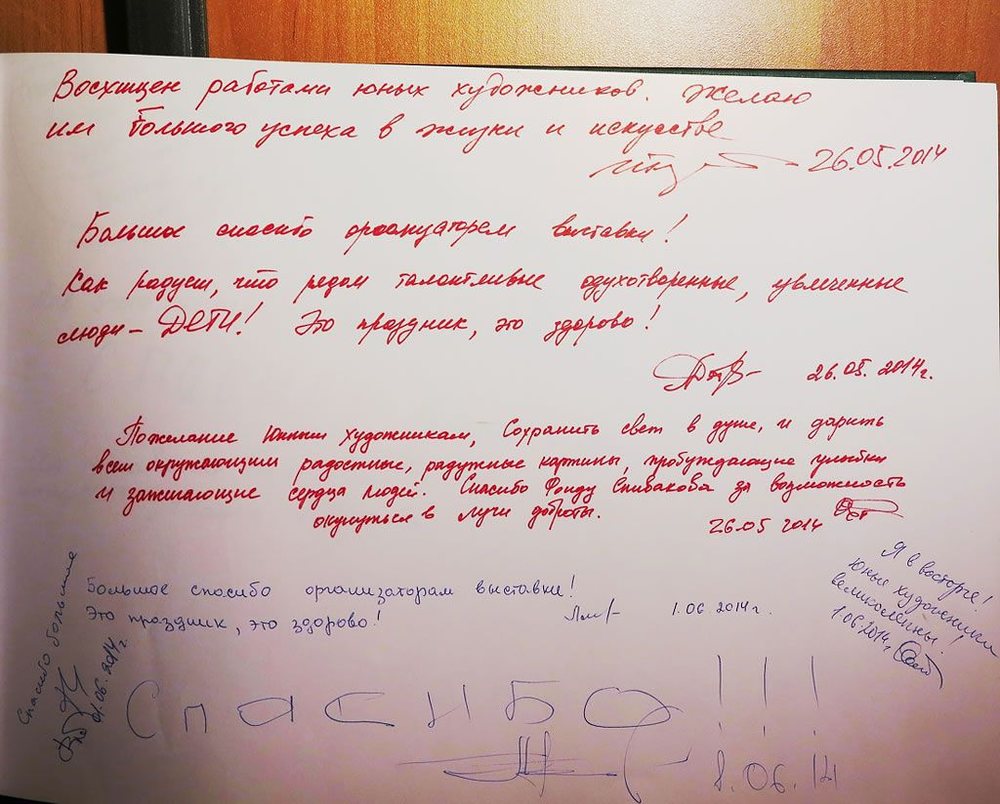 Восхищен работами юных художников. Желаю
им большого успеха в жизни и искусстве
26.05.2014
Большое спасибо организаторам выставки!
Как радует, что рядом талантливые одухотворенные, увлеченные
люди – ДЕТИ! Это праздник, это здорово!
26.05.2014г.
Пожелание Юным художникам, Сохранить свет в душе, и дарить
всем окружающим радостные, радужные картины, пробуждающие улыбки
и зажигающие сердца людей. Спасибо Фонду Спивакова за возможность
окунуться в лучи доброты.
26.05 2014
Большое спасибо организаторам выставки!
Это праздник, это здорово!
1.06.2014г.
Я в восторге!
Юные художники
великолепны!
1.06.2014г
Спасибо большое
01.06.2014г.
СпасИБО!!!
8.06.14